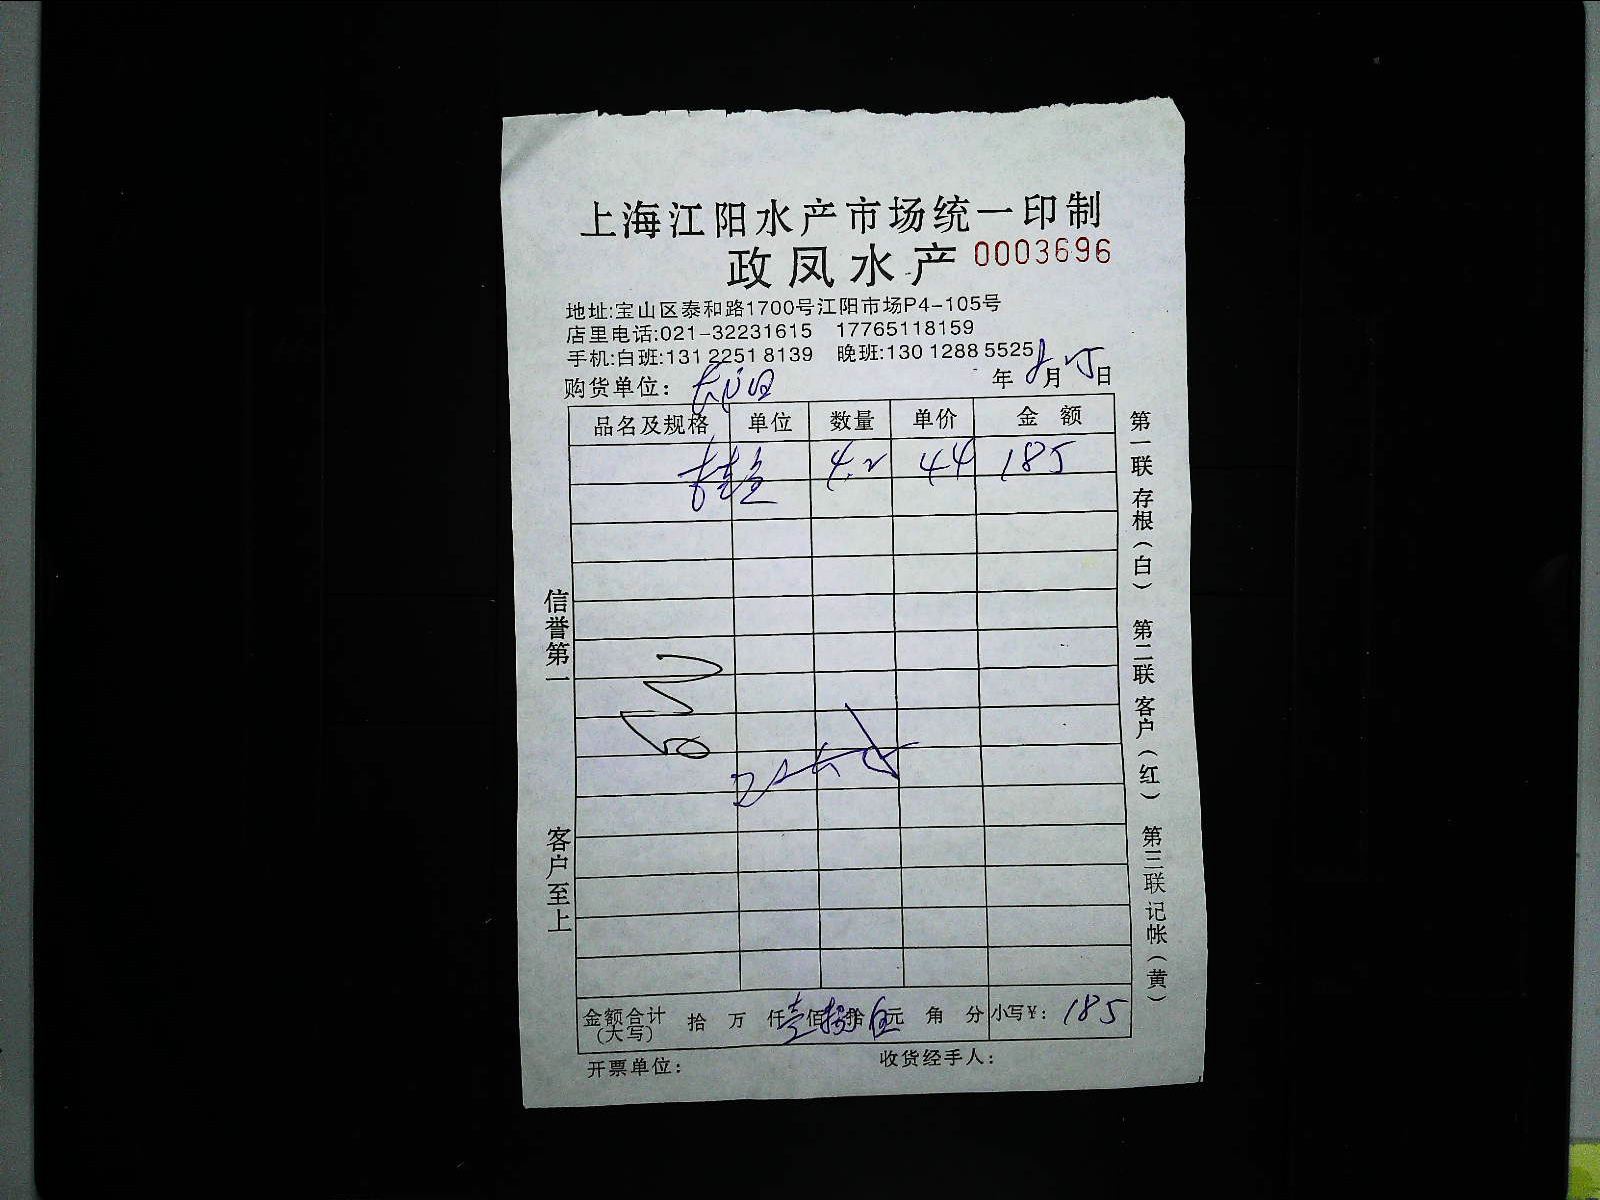 上海江阳水产市场统一印制
政凤水产 0003696
地址:宝山区泰和路1700号江阳市场P4-105号
店里电话:021-32231615 17765118159
手机:白班:131 2251 8139 晚班:130 1288 5525
购货单位: 年 8 月 25 日
品名及规格 单位 数量 单价 金额
桂鱼 4.2 44 185
金额合计(大写) 拾 万 仟 壹 佰 捌 拾 伍 元 角 分 小写¥: 185
开票单位: 收货经手人:
信誉第一
客户至上
第一联 存根(白) 第二联 客户(红) 第三联 记帐(黄)